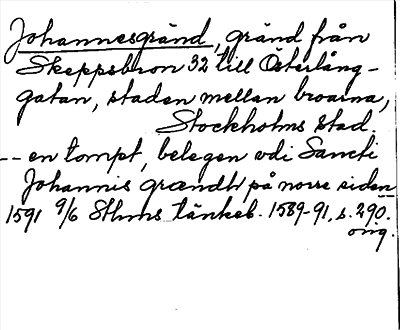 Johannesgränd, gränd från
Skeppsbron 32 till Österlång-
gatan, staden mellan broarna,
Stockholms stad.
-- en tompt, belegen vdi Sancti
Johannis grændh på norre siden --
1591 9/6 Sthms tänkeb. 1589-91, s. 290.
orig.